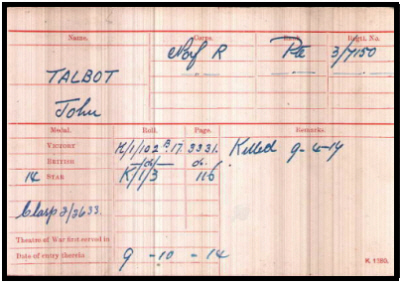 Name. Corps. Rank. Regtl. No.
TALBOT Norf R Pte 3/7150
John
Medal. Roll. Page. Remarks.
VICTORY K/1/102 B17 3331. Killed 9-4-17
BRITISH -do- do.
14 STAR K/1/3 116
Clasp 2/2633.
Theatre of War first served in
Date of entry therein 9 -10 -14
K. 1380.